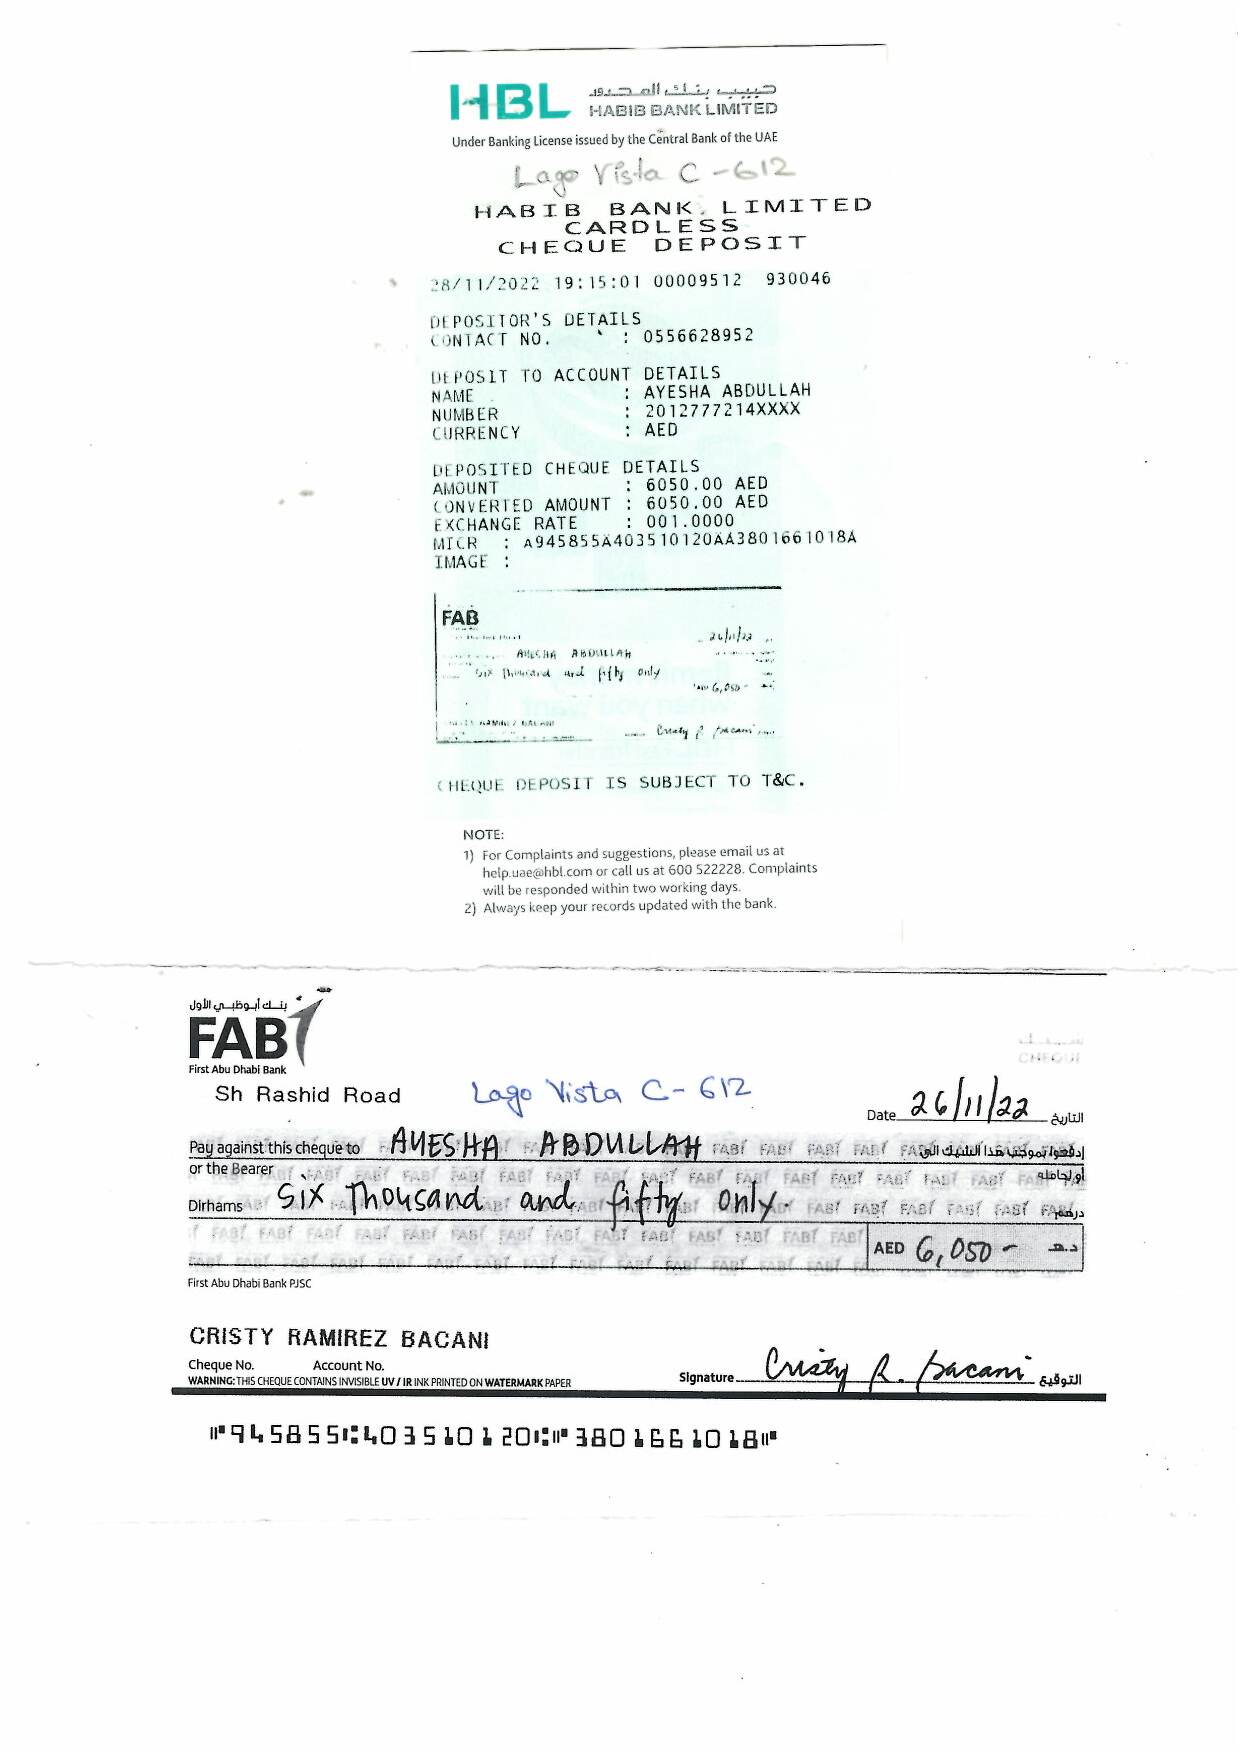 HBL حبيب بنك المحدود
HABIB BANK LIMITED
Under Banking License issued by the Central Bank of the UAE
Lago Vista C - 612
HABIB BANK LIMITED
CARDLESS
CHEQUE DEPOSIT
28/11/2022 19:15:01 00009512 930046
DEPOSITOR'S DETAILS
CONTACT NO. : 0556628952
DEPOSIT TO ACCOUNT DETAILS
NAME : AYESHA ABDULLAH
NUMBER : 2012777214XXXX
CURRENCY : AED
DEPOSITED CHEQUE DETAILS
AMOUNT : 6050.00 AED
CONVERTED AMOUNT : 6050.00 AED
EXCHANGE RATE : 001.0000
MICR : A945855A403510120AA3801661018A
IMAGE :
FAB
26/11/22
AYESHA ABDULLAH
Six Thousand and fifty only
6,050-
Cristy R. Bacani
CHEQUE DEPOSIT IS SUBJECT TO T&C.
NOTE:
1) For Complaints and suggestions, please email us at
help.uae@hbl.com or call us at 600 522228. Complaints
will be responded within two working days.
2) Always keep your records updated with the bank.
بنك أبوظبي الأول
FAB
First Abu Dhabi Bank
CHEQUE
Sh Rashid Road
Lago Vista C - 612
Date 26/11/22 التاريخ
Pay against this cheque to AYESHA ABDULLAH إدفعوا بموجب هذا الشيك إلى
or the Bearer أو لحامله
Dirhams Six Thousand and fifty only. درهم
AED 6,050 - د.هـ
First Abu Dhabi Bank PJSC
CRISTY RAMIREZ BACANI
Cheque No. Account No.
WARNING: THIS CHEQUE CONTAINS INVISIBLE UV / IR INK PRINTED ON WATERMARK PAPER
Signature Cristy R. Bacani التوقيع
⑈945855⑆403510120⑆⑈3801661018⑈